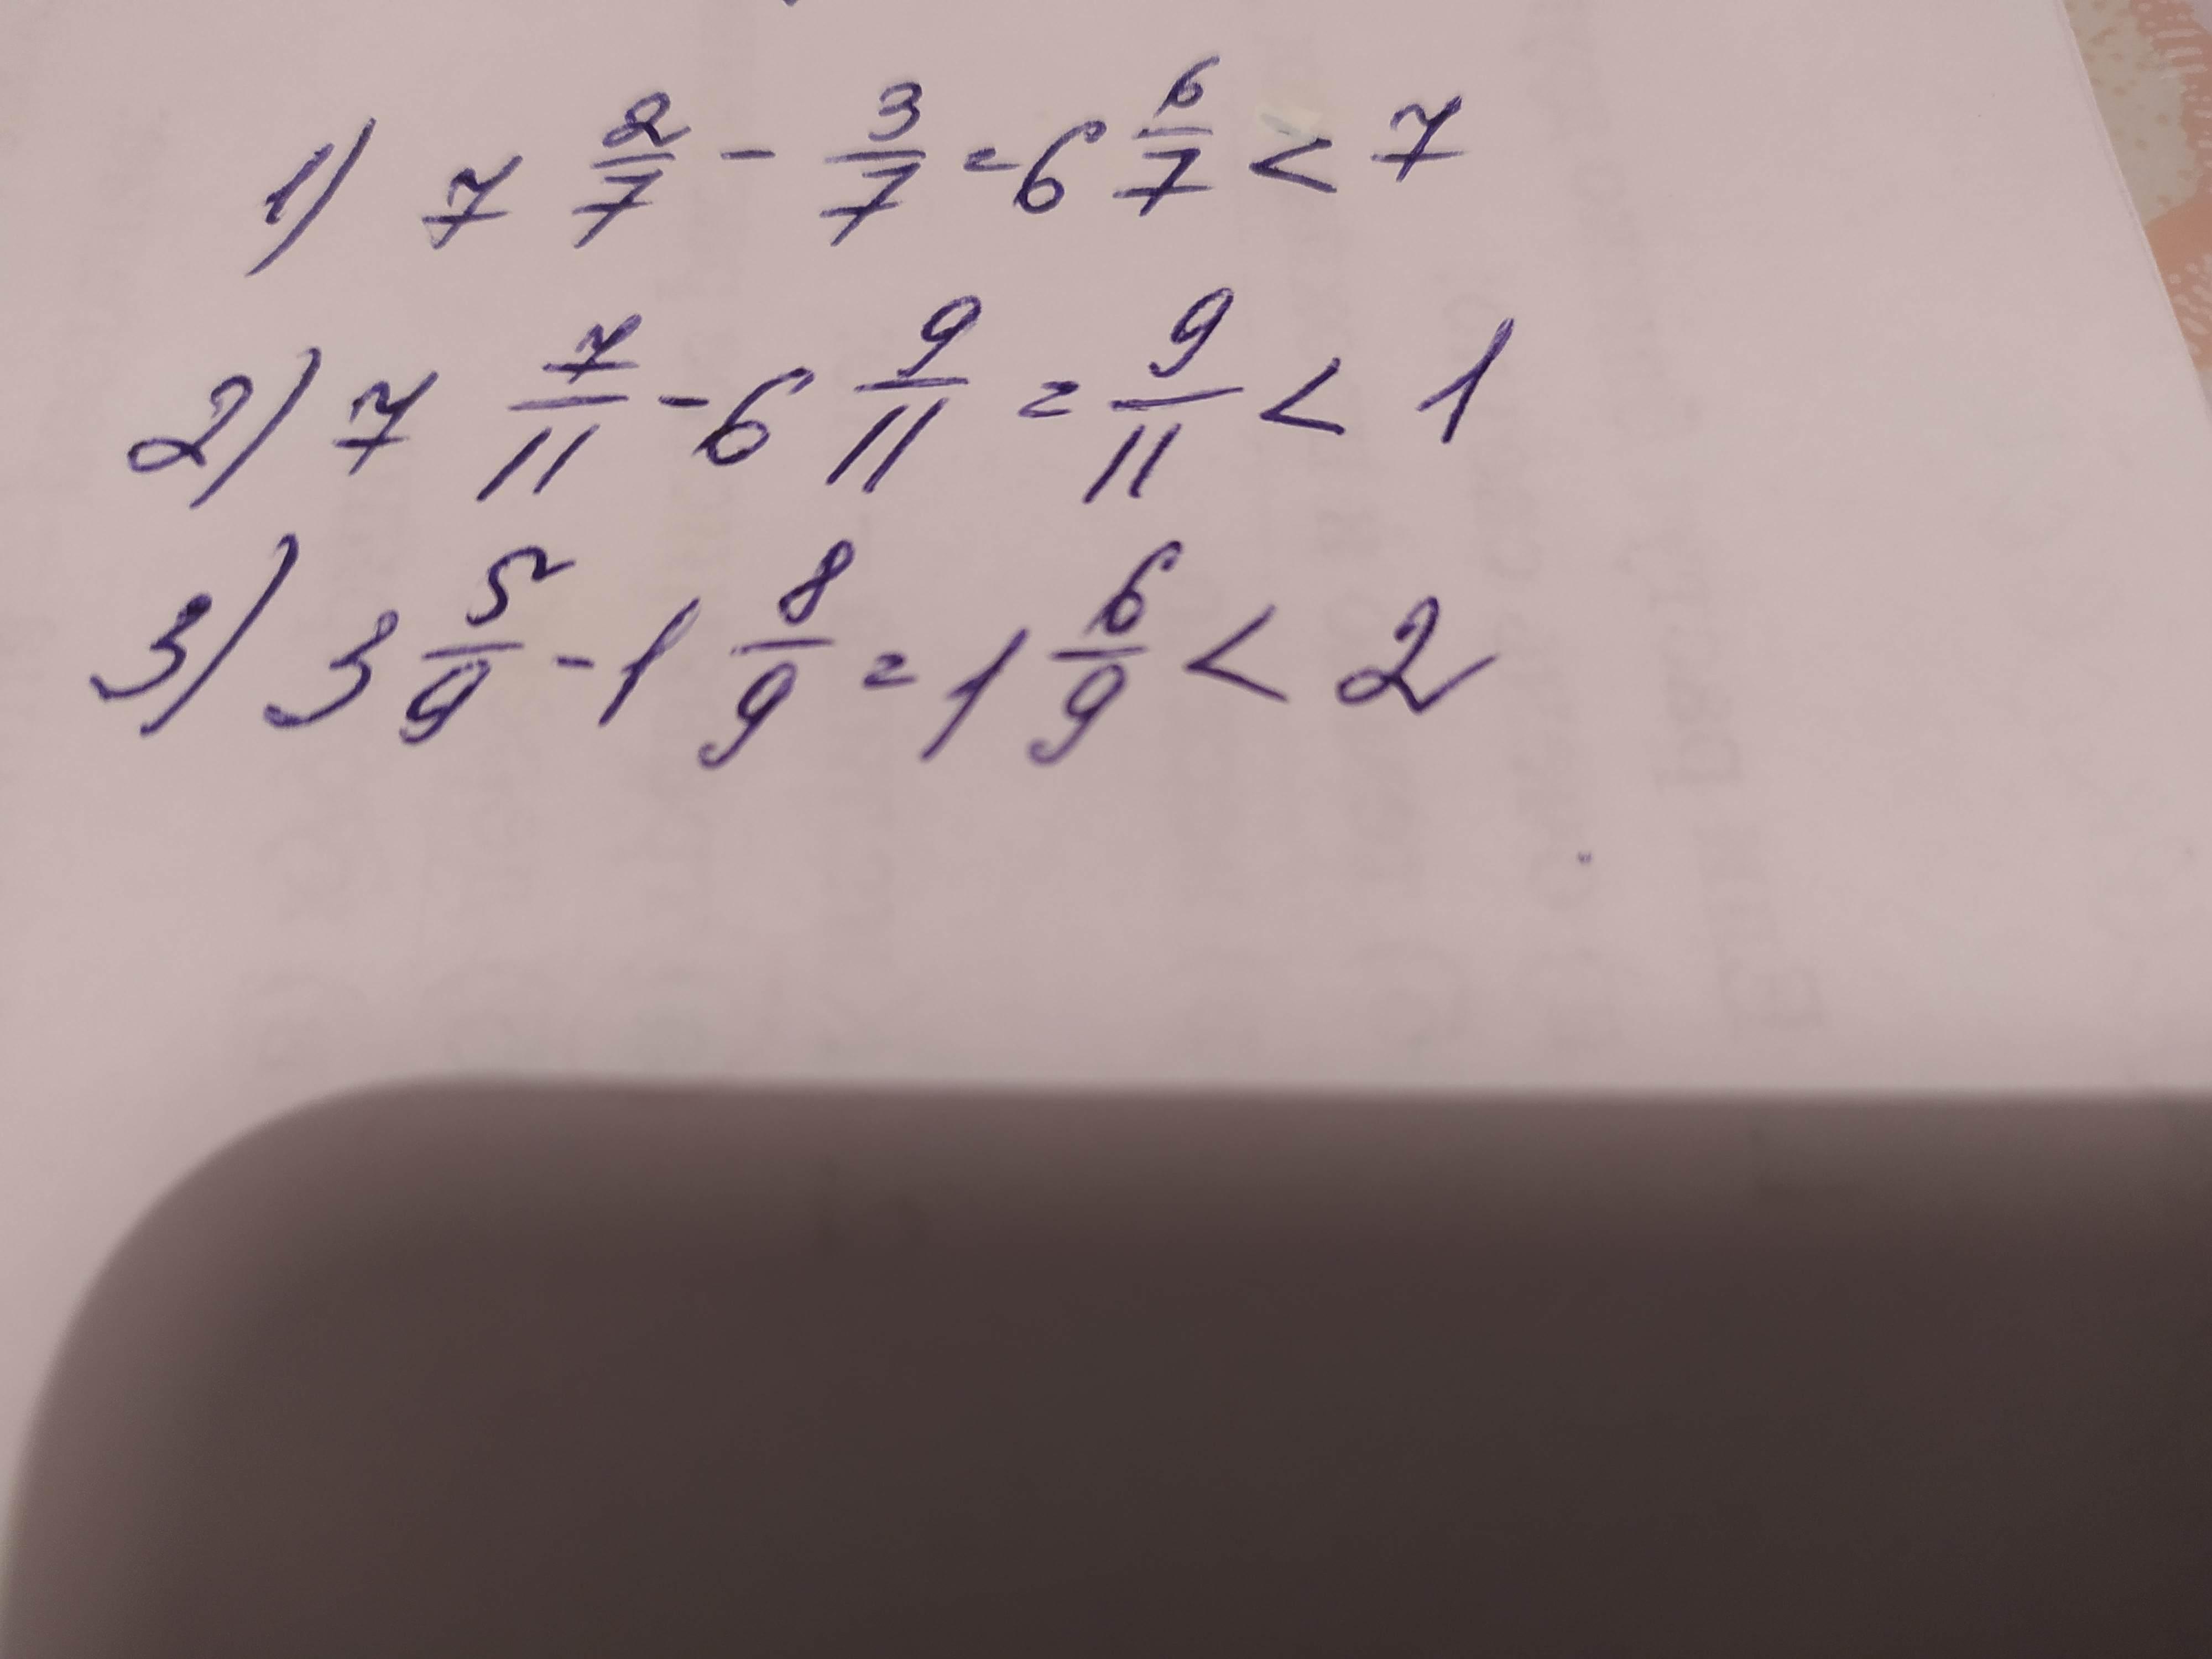 1) 7 2/7 - 3/7 = 6 6/7 < 7
2) 7 7/11 - 6 9/11 = 9/11 < 1
3) 3 5/9 - 1 8/9 = 1 6/9 < 2